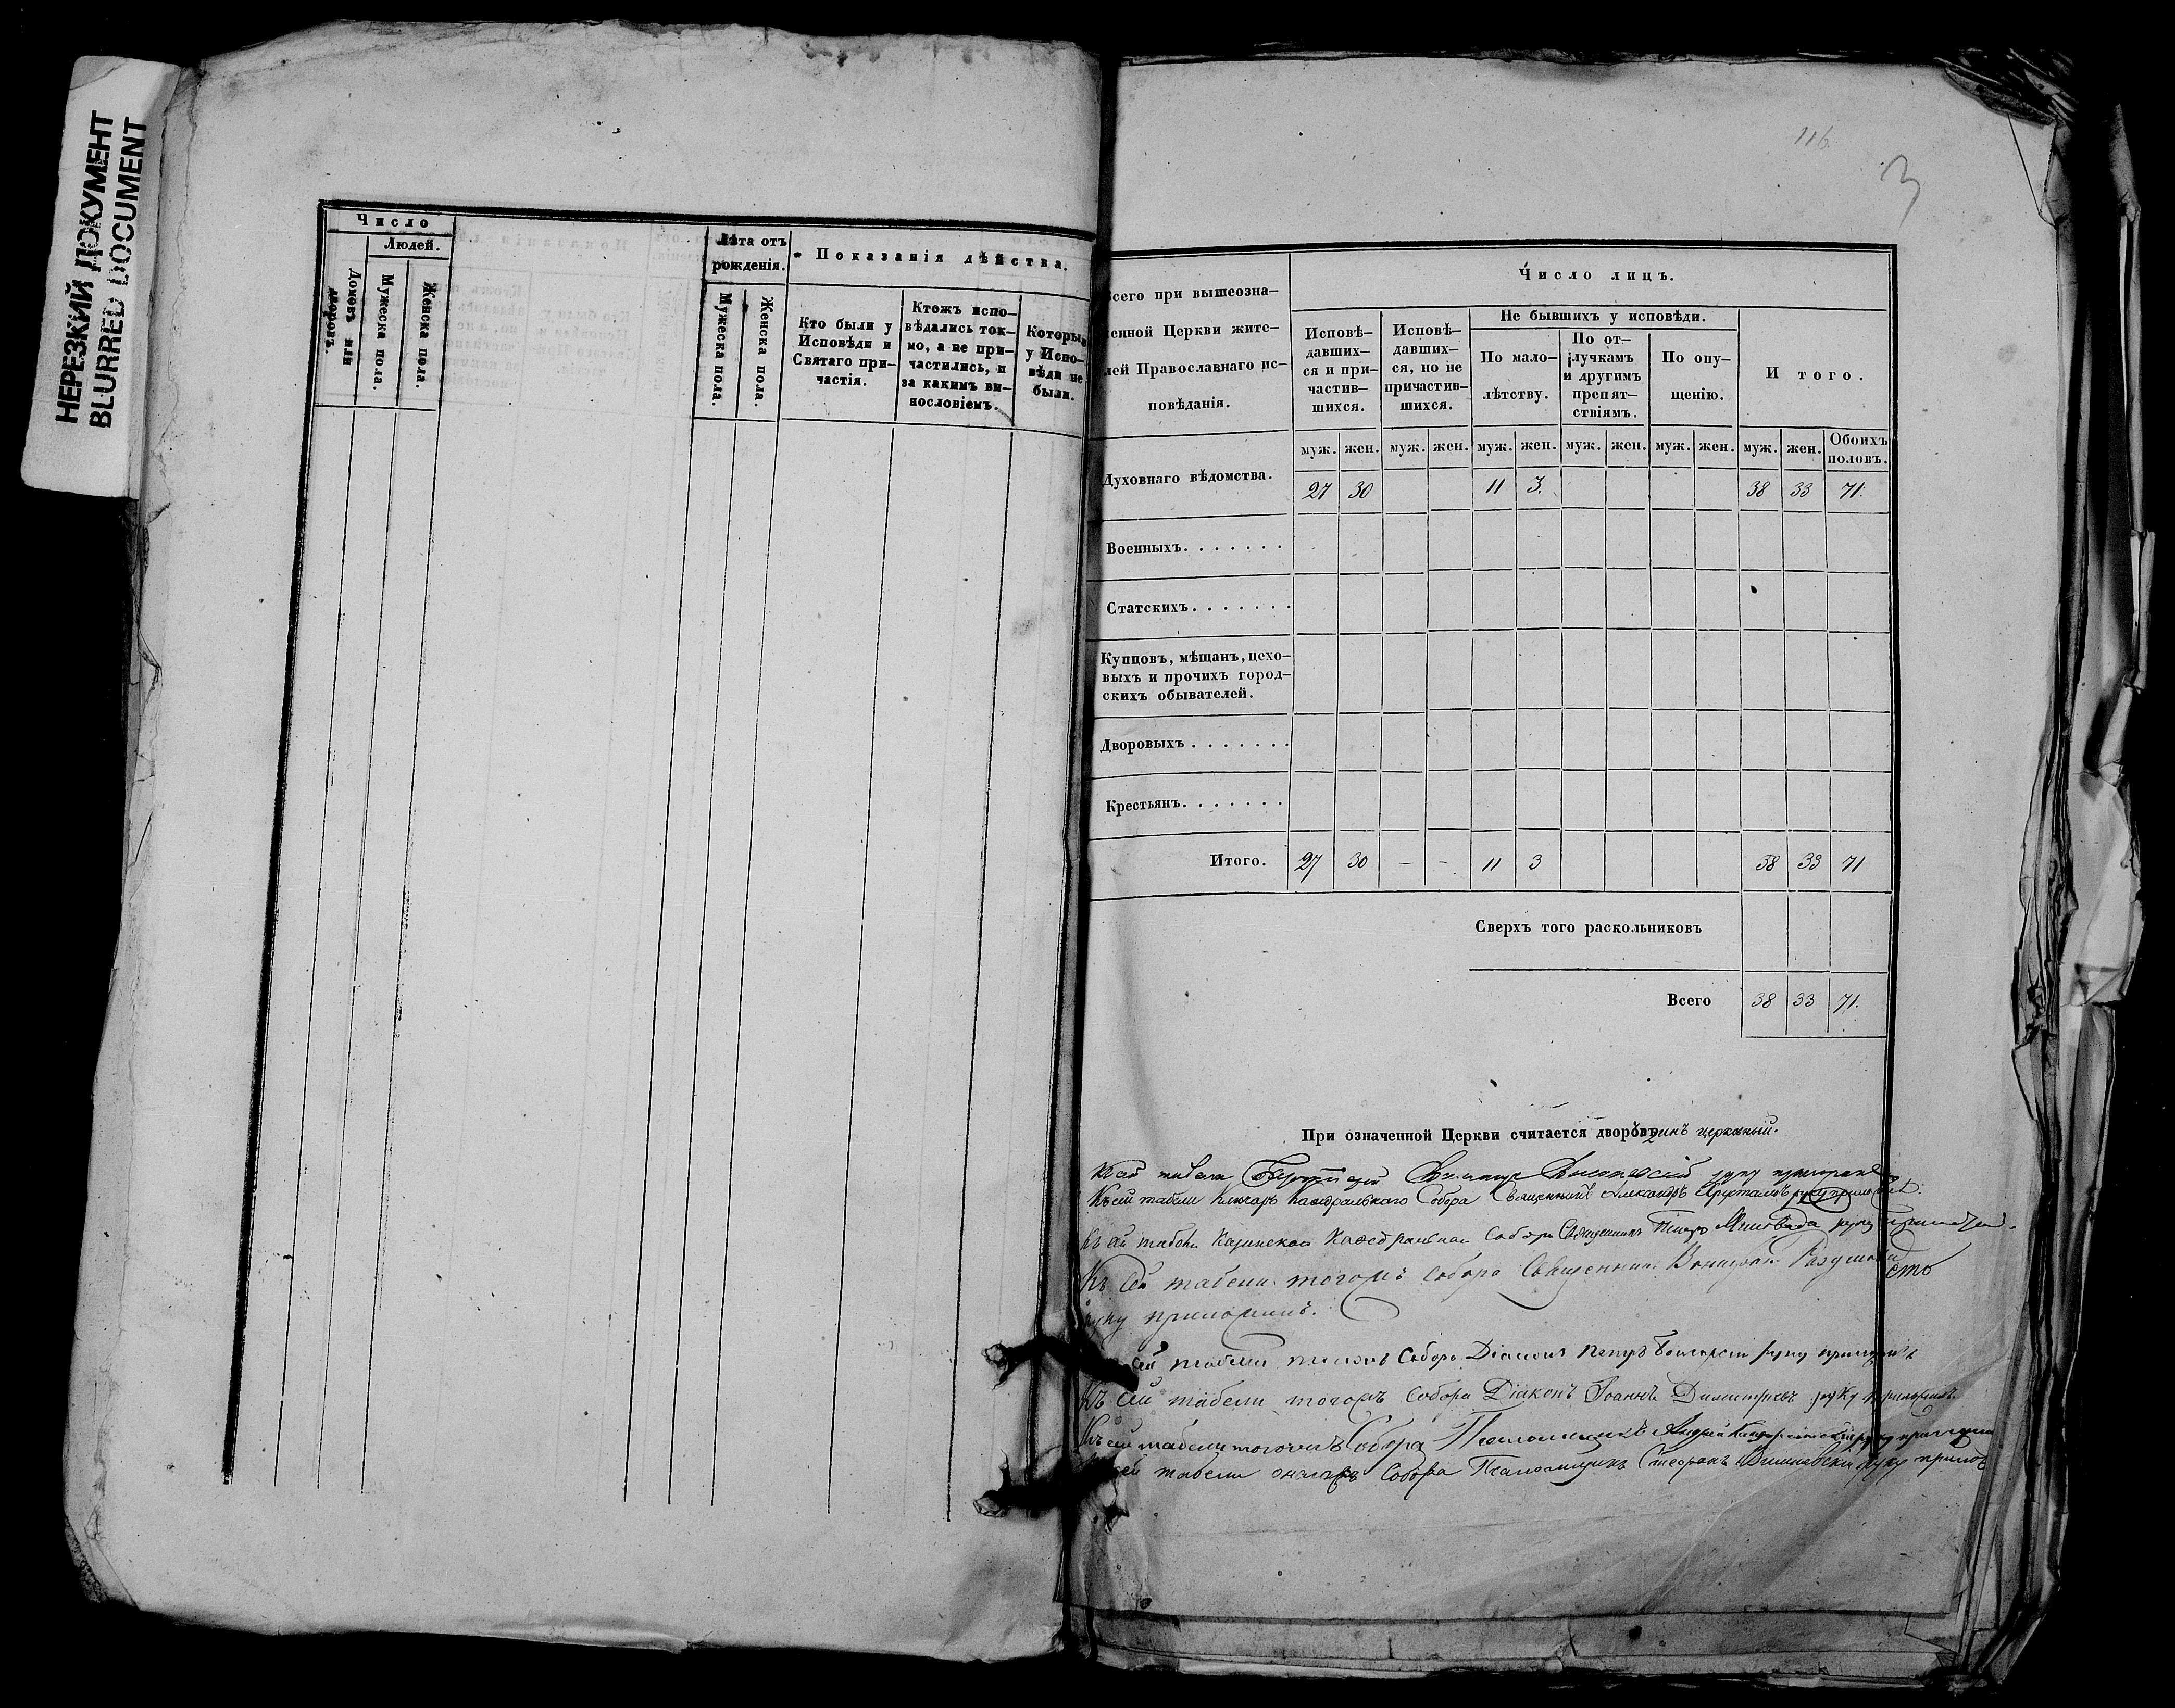 НЕРЕЗКИЙ ДОКУМЕНТ
BLURRED DOCUMENT
Число
Людей.
Домовъ или дворовъ.
Мужеска пола.
Женска пола.
Лѣта отъ
рожденія.
Мужеска пола.
Женска пола.
Показанія дѣйства.
Кто были у
Исповѣди и
Святаго при-
частія.
Ктожъ испо-
вѣдались ток-
мо, а не при-
частились, и
за какимъ ви-
нословіемъ.
Которыи
у Испо-
вѣди не
были.
116
3
всего при вышеозна-
ченной Церкви жите-
лей Православнаго ис-
повѣданія.
Число лицъ.
Исповѣ-
давших-
ся и при-
частив-
шихся.
Исповѣ-
давших-
ся, но не
причастив-
шихся.
Не бывшихъ у исповѣди.
По мало-
лѣтству.
По от-
лучкамъ
и другимъ
препят-
ствіямъ.
По опу-
щенію.
И того.
муж. жен. муж. жен. муж. жен. муж. жен. муж. жен. муж. жен. Обоихъ половъ.
Духовнаго вѣдомства. 27 30 11 3. 38 33 71.
Военныхъ.......
Статскихъ.......
Купцовъ, мѣщанъ, цехо-
выхъ и прочихъ город-
скихъ обывателей.
Дворовыхъ.......
Крестьянъ.......
Итого. 27 30 - - 11 3 38 33 71
Сверхъ того раскольниковъ
Всего 38 33 71.
При означенной Церкви считается дворовъ одинъ церковный.
табели руку
Къ сей табели Ключарь Каѳедральнаго Собора Священникъ Александръ руку приложилъ.
Къ сей табели Каѳедральнаго Собора Священникъ руку приложилъ.
Къ сей табели тогожъ Собора Священникъ
руку приложилъ.
сей табели тогожъ Собора Діаконъ Петръ руку приложилъ
Къ сей табели тогожъ Собора Діаконъ Іоаннъ Димитріевъ руку приложилъ.
Къ сей табели тогожъ Собора Псаломщикъ Андрей руку приложилъ
сей табели Собора Псаломщикъ Стефанъ руку прилож